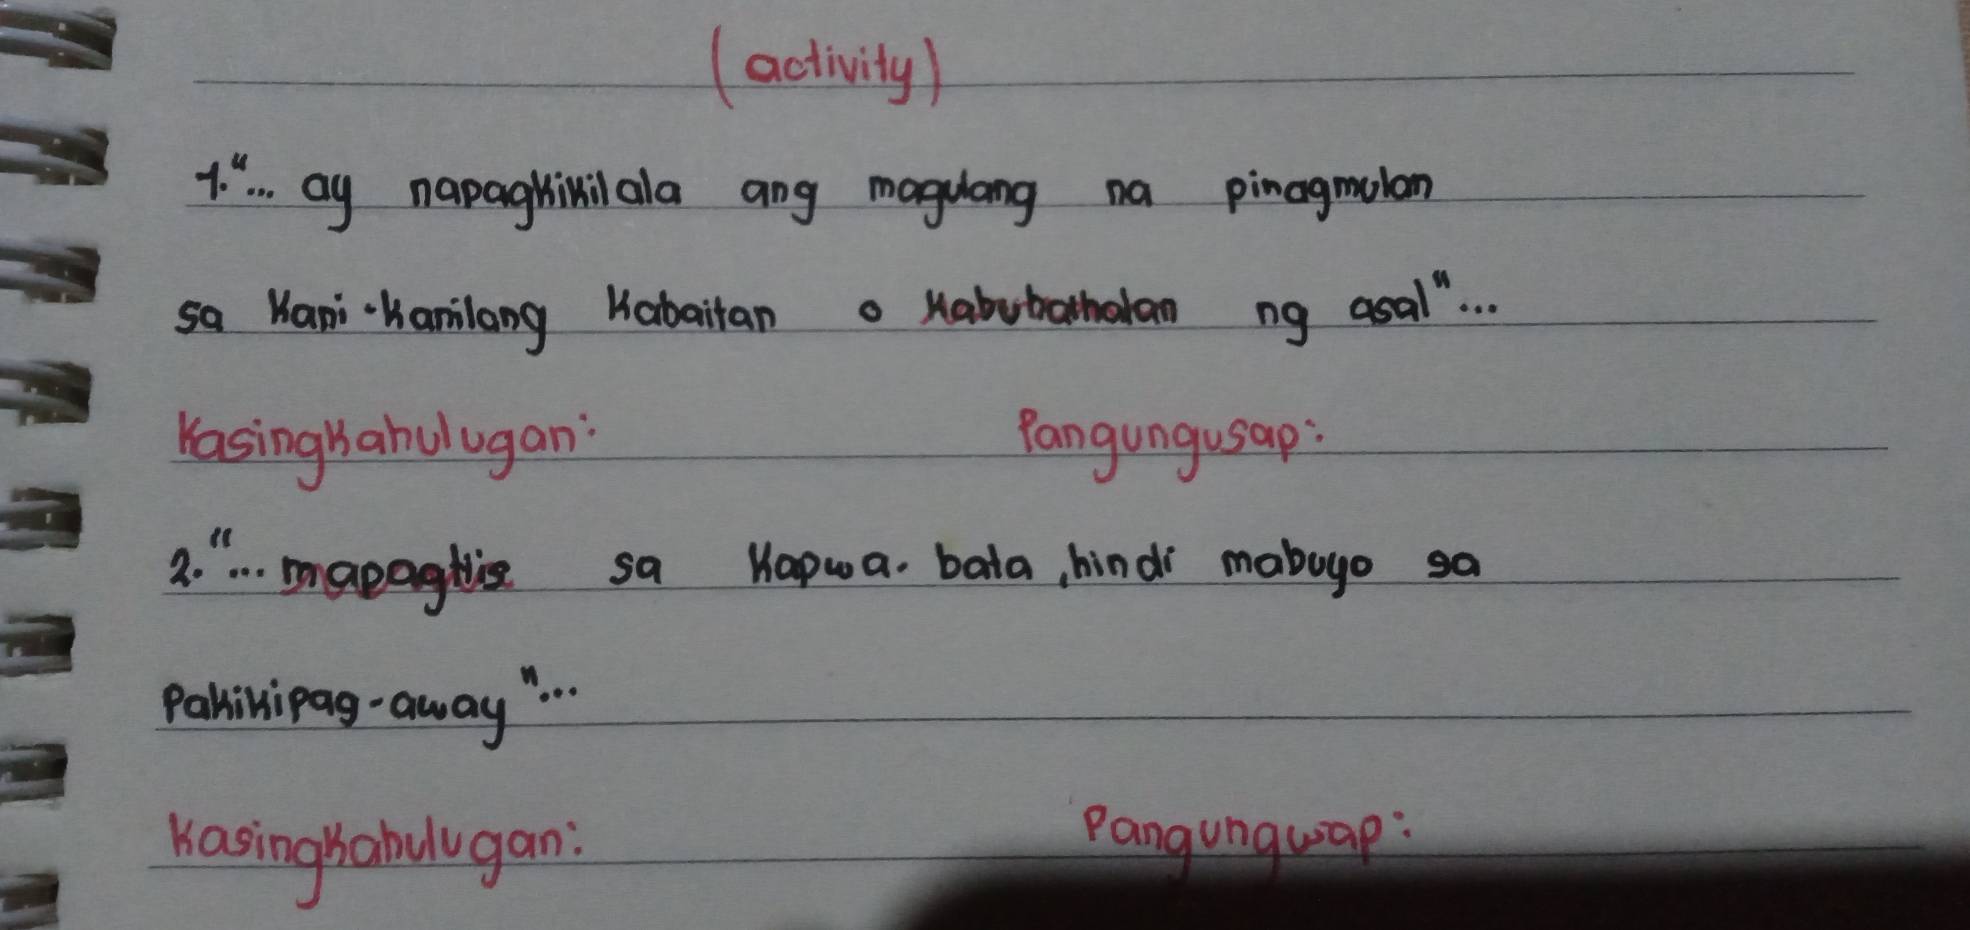 (activity)
1."... ay napagkikilala ang magulang na pinagmulan
sa kani-kanilang kabaitan o kabubathalan ng asal"...
Kasingkahulugan: Pangungusap:
2."... mapagtiis sa kapwa. bata, hindi mabuyo sa
Pakikipag-away"...
Kasingkahulugan: Pangungusap: